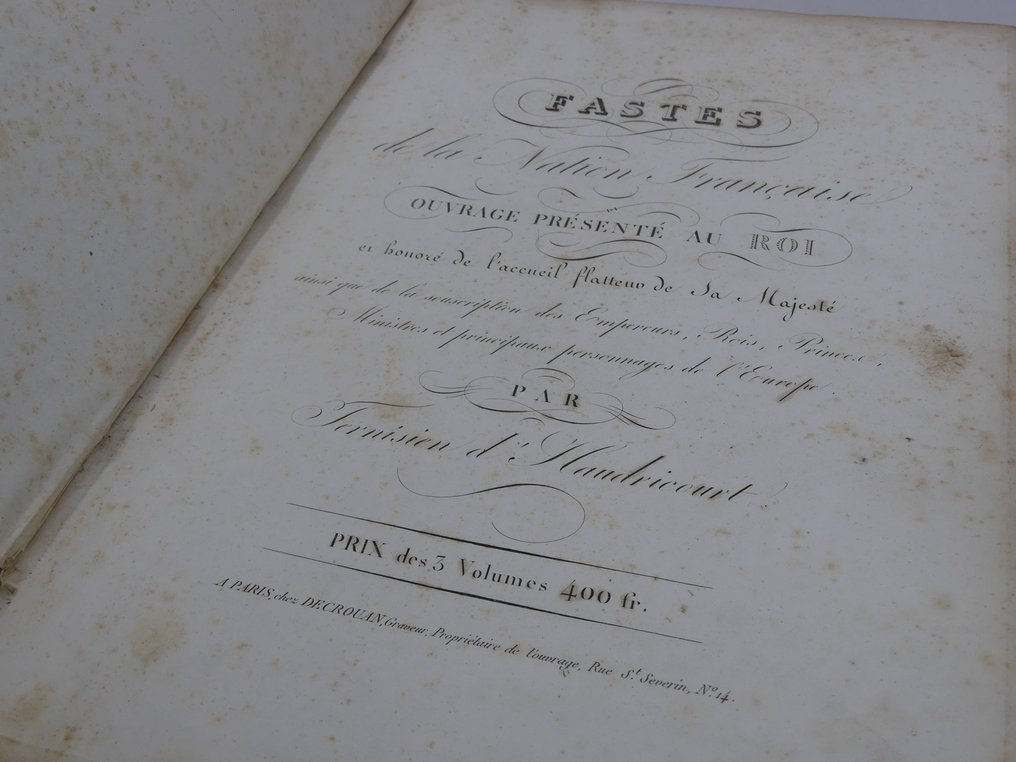 FASTES
de la Nation Française
OUVRAGE PRÉSENTÉ AU ROI
et honoré de l'accueil flatteur de Sa Majesté
ainsi que de la souscription des Empereurs, Rois, Princes,
Ministres et principaux personnages de l'Europe
PAR
Ternisien d'Haudricourt
PRIX des 3 Volumes 400 fr.
A PARIS, chez DECROUAN, Graveur, Propriétaire de l'ouvrage, Rue St. Severin, No. 14.